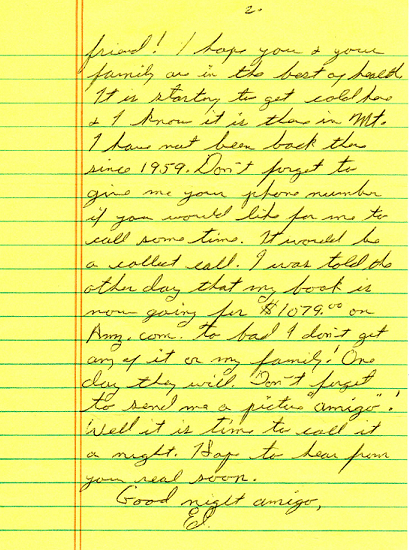 2.
friend! I hope you & your
family are in the best of health
It is starting to get cold here
& I know it is there in Mt.
I have not been back there
since 1959. Don't forget to
give me your phone number
if you would like for me to
call some time. It would be
a collect call. I was told the
other day that my book is
now going for $1079.00 on
Amz.com. to bad I don't get
any of it or my family! One
day they will. Don't forget
to send me a picture "amigo"!
Well it is time to call it
a night. Hope to hear from
you real soon.
Good night amigo,
Ed.